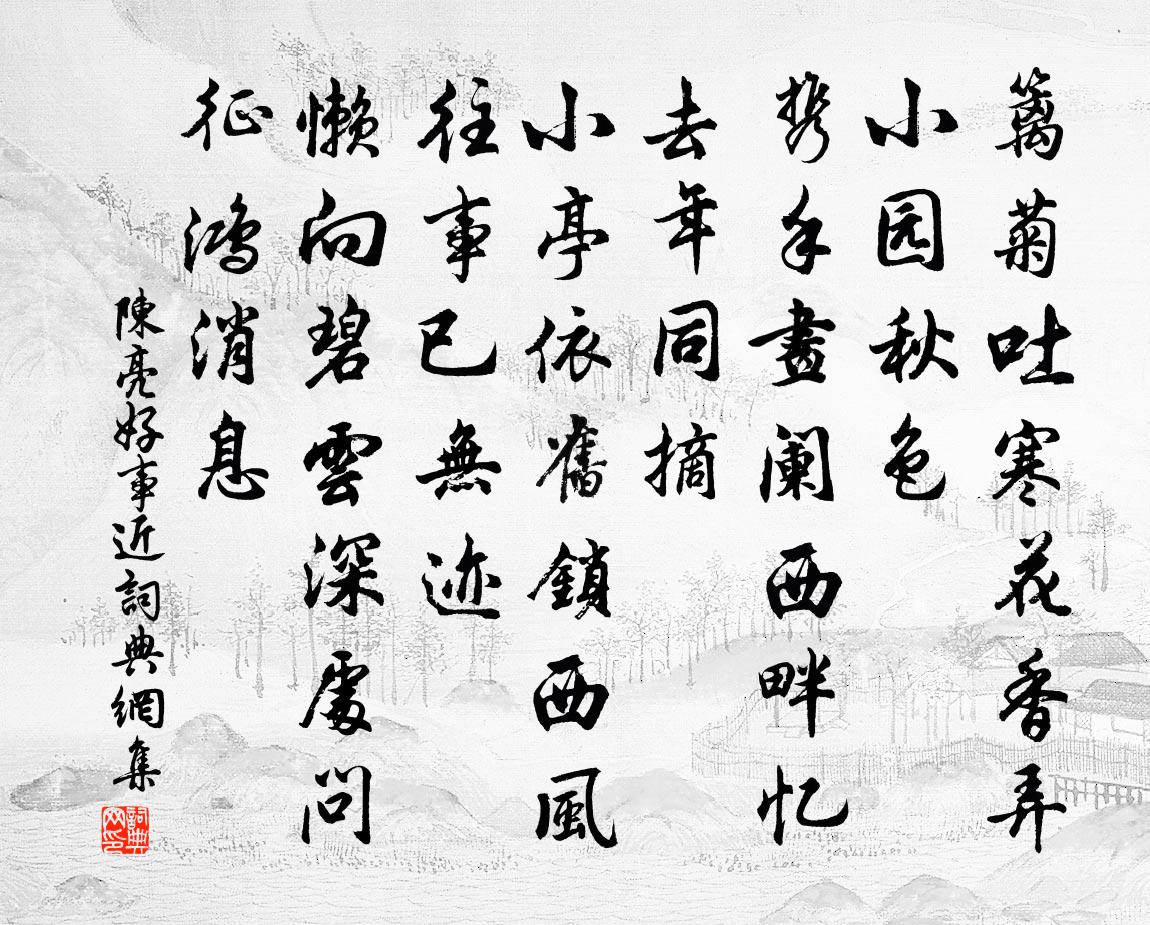 篱菊吐寒花香弄
小园秋色
携手畫阑西畔忆
去年同摘
小亭依舊鎖西風
往事已無迹
懒向碧雲深處问
征鸿消息
陳亮好事近詞典網集
詞典网印